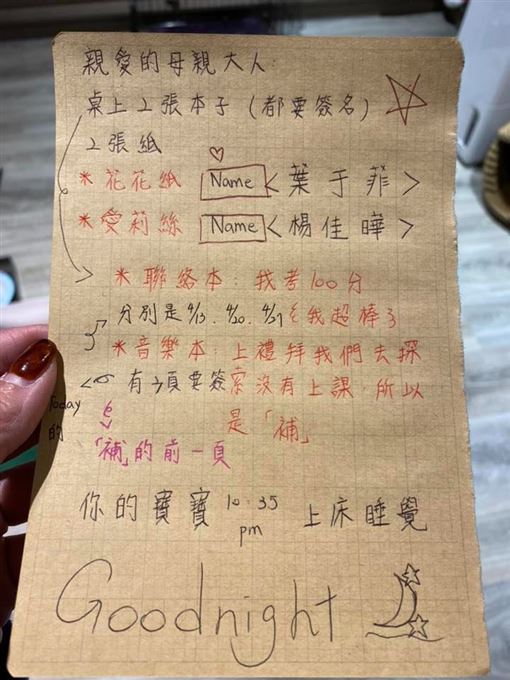 親愛的母親大人:
桌上2張本子(都要簽名)
2張紙
*花花紙 Name<葉于菲>
*愛莉絲 Name<楊佳曄>
*聯絡本:我考100分
分別是4/13、4/20、4/27 我超棒
*音樂本 上禮拜我們去探
有3頁要簽 索沒有上課,所以
Today的 是「補」
「補」的前一頁
你的寶寶 10:35 pm 上床睡覺
Goodnight